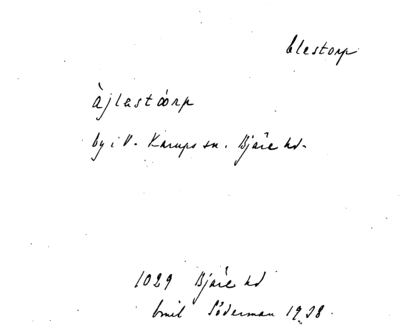 Elestorp
àjlastòorp
by i V. Karups sn. Bjäre hd.
1029 Bjäre hd
Emil Söderman 1928.